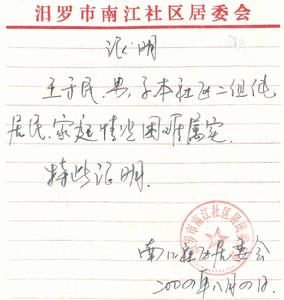 汨罗市南江社区居委会
证明
王子民,男,系本社区二组住
居民,家庭情况困难属实.
特此证明.
南江社区居委会
汨罗市南江社区居民委